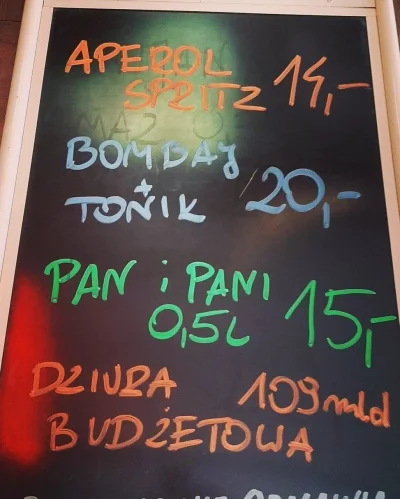 APEROL
SPRITZ 14,-
BOMBAJ
+
TONIK 20,-
PAN i PANI
0,5L 15,-
DZIURA 109 mld
BUDŻETOWA